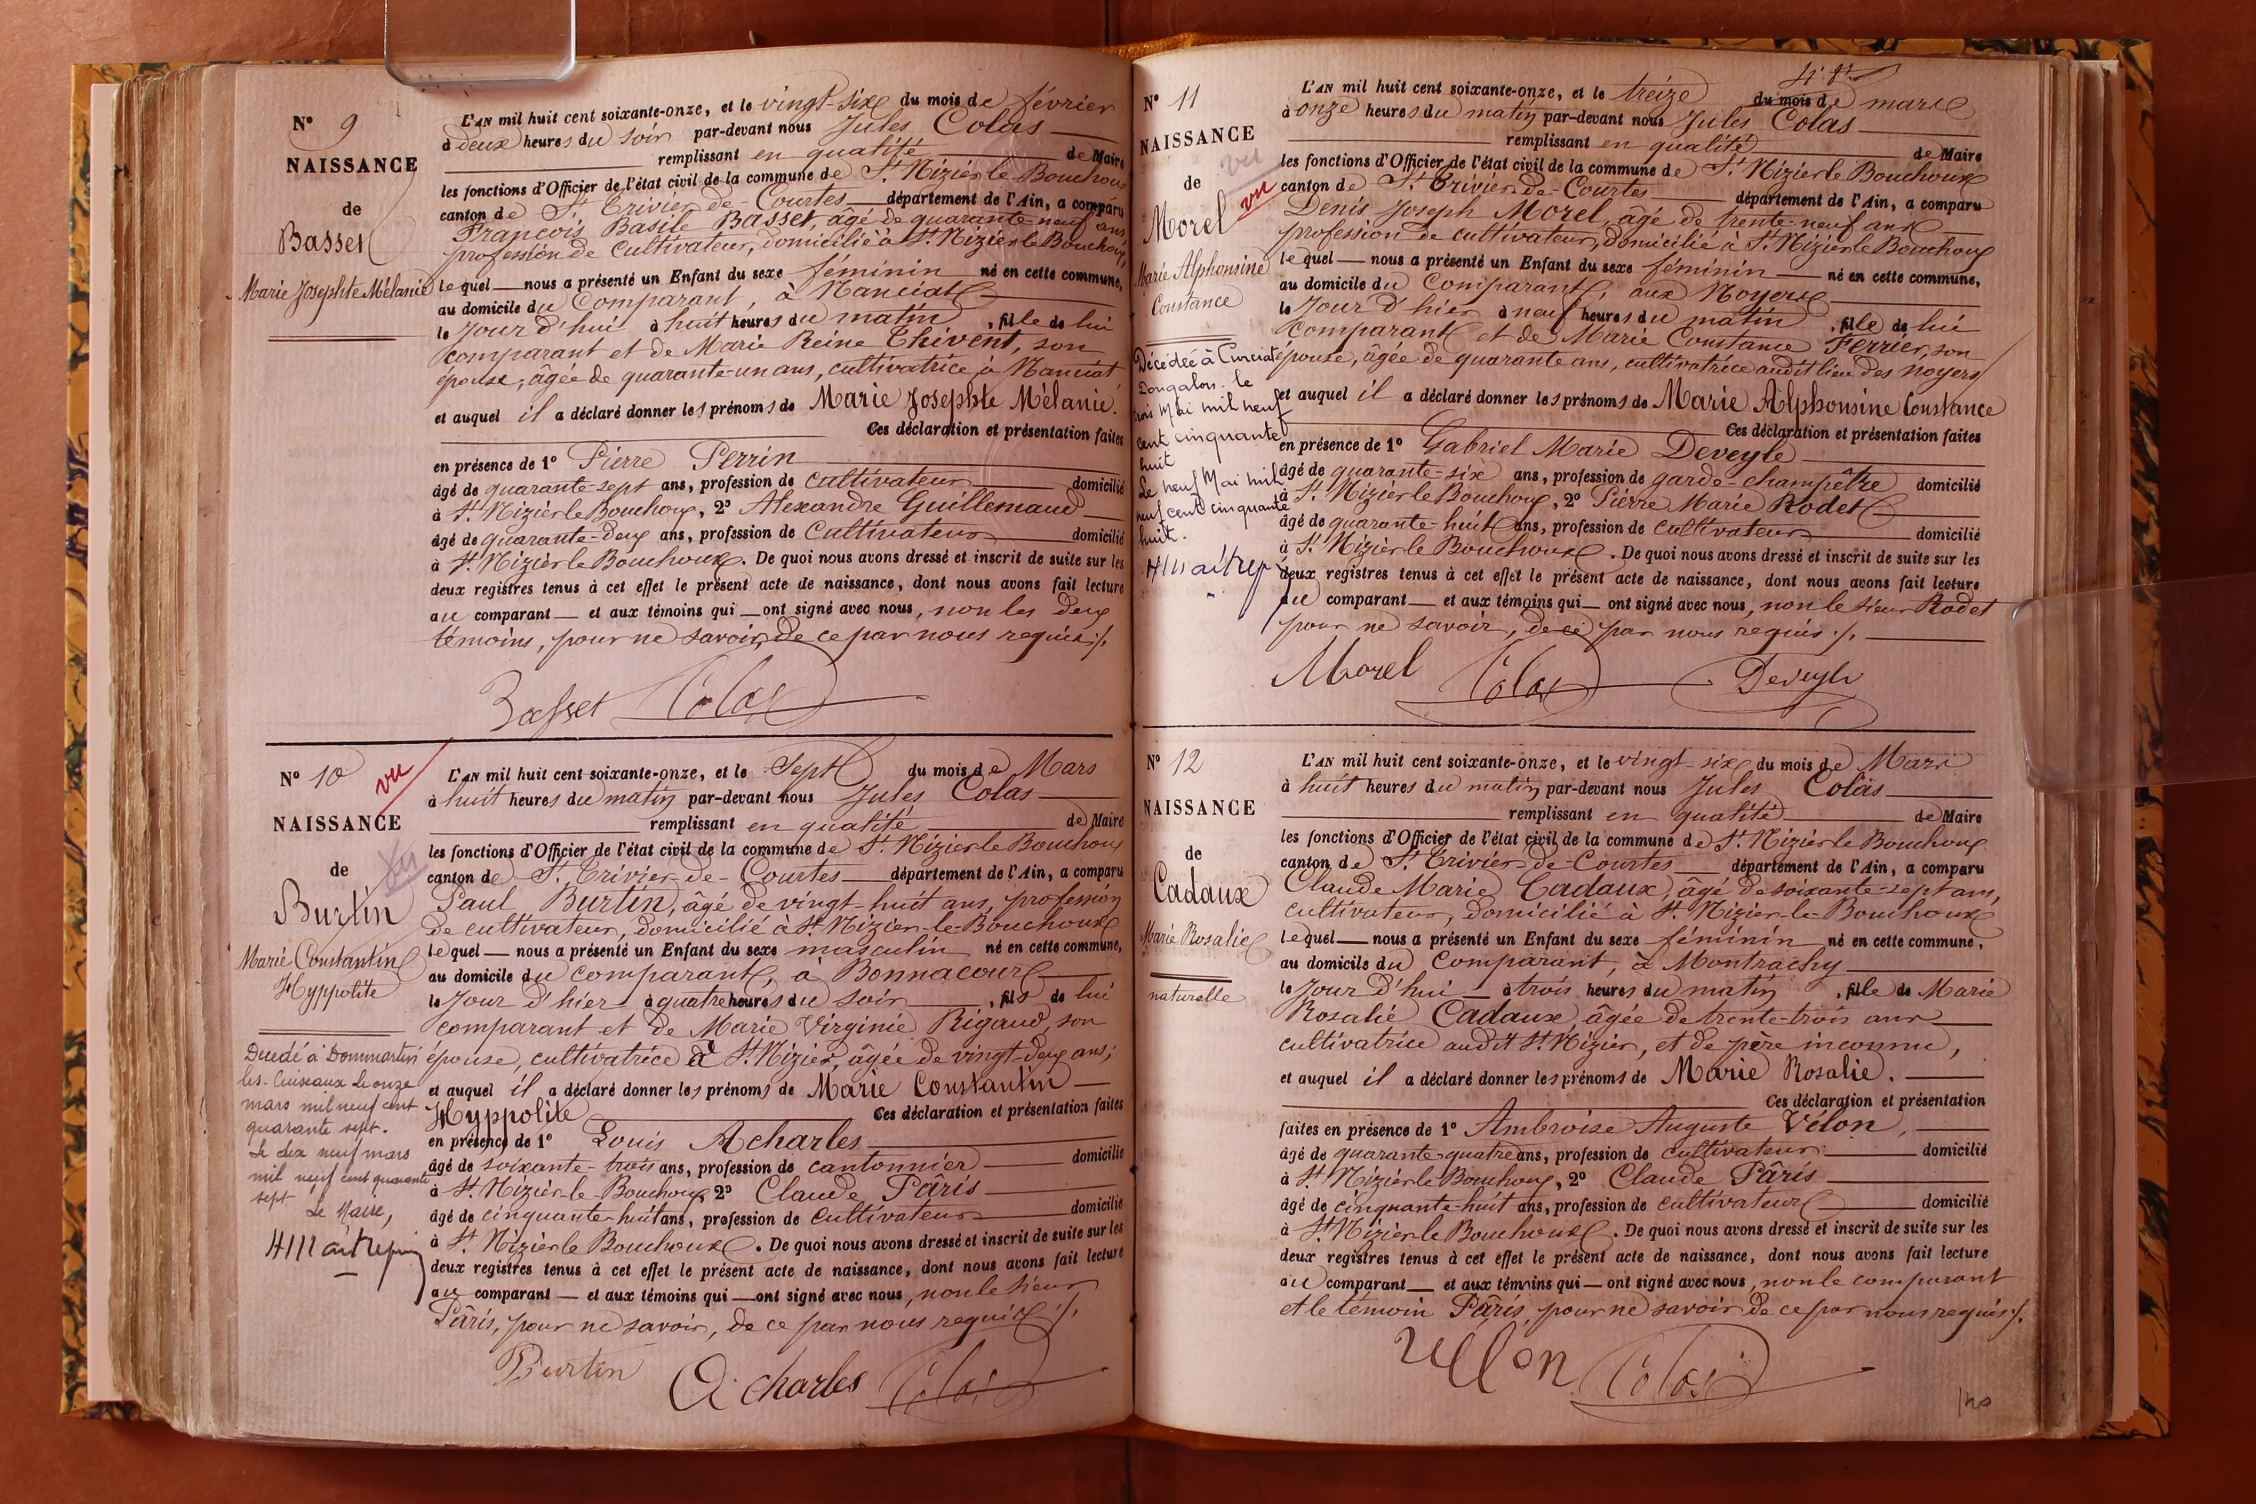 N° 9
NAISSANCE
de
Basset
Marie Josephte Mélanie
L'AN mil huit cent soixante-onze, et le vingt-six du mois de février
à deux heures du soir par-devant nous Jules Colas
remplissant en qualité de Maire
les fonctions d'Officier de l'état civil de la commune de St Nizier le Bouchoux
canton de St Trivier-de-Courtes département de l'Ain, a comparu
François Basile Basset, âgé de quarante-neuf ans
profession de cultivateur, domicilié à St Nizier le Bouchoux,
lequel nous a présenté un Enfant du sexe féminin né en cette commune,
au domicile du Comparant, à Nanciat
le Jour d'hui à huit heures du matin, fille de lui
comparant et de Marie Reine Thivent, son
épouse, âgée de quarante-un ans, cultivatrice à Nanciat
et auquel il a déclaré donner les prénoms de Marie Josephte Mélanie.
Ces déclaration et présentation faites
en présence de 1° Pierre Perrin
âgé de quarante-sept ans, profession de cultivateur domicilié
à St Nizier le Bouchoux, 2° Alexandre Guillemaud
âgé de quarante-deux ans, profession de Cultivateur domicilié
à St Nizier le Bouchoux. De quoi nous avons dressé et inscrit de suite sur les
deux registres tenus à cet effet le présent acte de naissance, dont nous avons fait lecture
au comparant et aux témoins qui ont signé avec nous, non les deux
témoins, pour ne savoir, de ce par nous requis ./.
Basset Colas
N° 10
vu
NAISSANCE
de
vu
Burtin
Marie Constantin
Hyppolite
Décédé à Dommartin
les-Cuiseaux le onze
mars mil neuf cent
quarante sept.
Le dix neuf mars
mil neuf cent quarante
sept Le Maire,
HMaitrepin
L'AN mil huit cent soixante-onze, et le Sept du mois de Mars
à huit heures du matin par-devant nous Jules Colas
remplissant en qualité de Maire
les fonctions d'Officier de l'état civil de la commune de St Nizier le Bouchoux
canton de St Trivier-de-Courtes département de l'Ain, a comparu
Paul Burtin, âgé de vingt-huit ans, profession
de cultivateur, domicilié à St Nizier-le-Bouchoux
lequel nous a présenté un Enfant du sexe masculin né en cette commune,
au domicile du comparant, à Bonnacourt
le Jour d'hier à quatre heures du soir, fils de lui
comparant et de Marie Virginie Rigaud, son
épouse, cultivatrice à St Nizier, âgée de vingt-deux ans;
et auquel il a déclaré donner les prénoms de Marie Constantin
Hyppolite Ces déclaration et présentation faites
en présence de 1° Louis Acharles
âgé de soixante-trois ans, profession de cantonnier domicilié
à St Nizier-le-Bouchoux 2° Claude Pâris
âgé de cinquante-huit ans, profession de Cultivateur domicilié
à St Nizier le Bouchoux. De quoi nous avons dressé et inscrit de suite sur les
deux registres tenus à cet effet le présent acte de naissance, dont nous avons fait lecture
au comparant et aux témoins qui ont signé avec nous, non le sieur
Pâris, pour ne savoir, de ce par nous requis ./.
Burtin A. charles Colas
N° 11
NAISSANCE
vu
de
vu
Morel
Marie Alphonsine
Constance
Décédée à Curciat
Dongalon. le
trois Mai mil neuf
cent cinquante
huit
Le neuf Mai mil
neuf cent cinquante
huit.
HMaitrepin
L'AN mil huit cent soixante-onze, et le treize du mois de mars
à onze heures du matin par-devant nous Jules Colas
remplissant en qualité de Maire
les fonctions d'Officier de l'état civil de la commune de St Nizier le Bouchoux
canton de St Trivier-de-Courtes département de l'Ain, a comparu
Denis Joseph Morel, âgé de trente-neuf ans
profession de cultivateur, domicilié à St Nizier le Bouchoux
lequel nous a présenté un Enfant du sexe féminin né en cette commune,
au domicile du Comparant, aux Noyers
le Jour d'hier à neuf heures du matin, fille de lui
comparant et de Marie Constance Ferrier, son
épouse, âgée de quarante ans, cultivatrice audit lieu des noyers
et auquel il a déclaré donner les prénoms de Marie Alphonsine Constance
Ces déclaration et présentation faites
en présence de 1° Gabriel Marie Deveyle
âgé de quarante-six ans, profession de garde-champêtre domicilié
à St Nizier le Bouchoux, 2° Pierre Marie Rodet
âgé de quarante-huit ans, profession de cultivateur domicilié
à St Nizier le Bouchoux. De quoi nous avons dressé et inscrit de suite sur les
deux registres tenus à cet effet le présent acte de naissance, dont nous avons fait lecture
au comparant et aux témoins qui ont signé avec nous, non le sieur Rodet
pour ne savoir, de ce par nous requis ./.
Morel Colas Deveyle
N° 12
NAISSANCE
de
Cadaux
Marie Rosalie
naturelle
L'AN mil huit cent soixante-onze, et le vingt-six du mois de Mars
à huit heures du matin par-devant nous Jules Colas
remplissant en qualité de Maire
les fonctions d'Officier de l'état civil de la commune de St Nizier le Bouchoux
canton de St Trivier-de-Courtes département de l'Ain, a comparu
Claude Marie Cadaux, âgé de soixante-sept ans,
cultivateur, domicilié à St Nizier-le-Bouchoux
lequel nous a présenté un Enfant du sexe féminin né en cette commune,
au domicile du Comparant, à Montrachy
le Jour d'hui à trois heures du matin, fille de Marie
Rosalie Cadaux âgée de trente-trois ans
cultivatrice audit St Nizier, et de père inconnu,
et auquel il a déclaré donner les prénoms de Marie Rosalie.
Ces déclaration et présentation
faites en présence de 1° Ambroise Auguste Vélon,
âgé de quarante quatre ans, profession de cultivateur domicilié
à St Nizier le Bouchoux, 2° Claude Pâris
âgé de cinquante-huit ans, profession de cultivateur domicilié
à St Nizier le Bouchoux. De quoi nous avons dressé et inscrit de suite sur les
deux registres tenus à cet effet le présent acte de naissance, dont nous avons fait lecture
au comparant et aux témoins qui ont signé avec nous, non le comparant
et le témoin Pâris, pour ne savoir de ce par nous requis ./.
Velon Colas